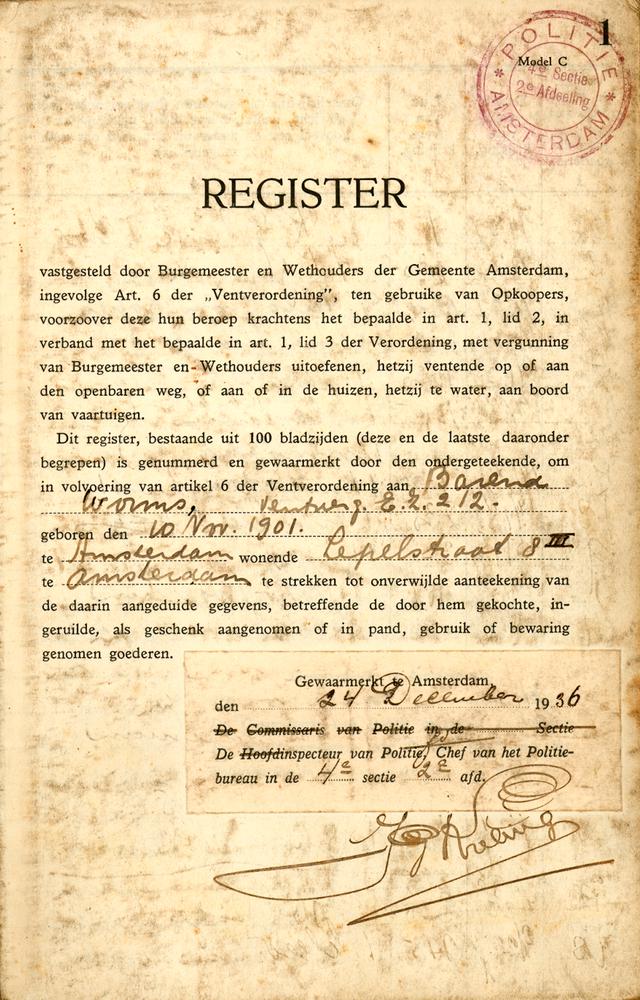 1
Model C
POLITIE
4e Sectie
2e Afdeeling
AMSTERDAM
REGISTER
vastgesteld door Burgemeester en Wethouders der Gemeente Amsterdam,
ingevolge Art. 6 der „Ventverordening”, ten gebruike van Opkoopers,
voorzoover deze hun beroep krachtens het bepaalde in art. 1, lid 2, in
verband met het bepaalde in art. 1, lid 3 der Verordening, met vergunning
van Burgemeester en Wethouders uitoefenen, hetzij ventende op of aan
den openbaren weg, of aan of in de huizen, hetzij te water, aan boord
van vaartuigen.
Dit register, bestaande uit 100 bladzijden (deze en de laatste daaronder
begrepen) is genummerd en gewaarmerkt door den ondergeteekende, om
in volvoering van artikel 6 der Ventverordening aan Barend
Worms, Ventverg. E.Z. 212.
geboren den 10 Nov. 1901.
te Amsterdam wonende Lepelstraat 8 III
te Amsterdam te strekken tot onverwijlde aanteekening van
de daarin aangeduide gegevens, betreffende de door hem gekochte, in-
geruilde, als geschenk aangenomen of in pand, gebruik of bewaring
genomen goederen.
Gewaarmerkt te Amsterdam
den 24 December 1936
De Commissaris van Politie in de Sectie
De Hoofdinspecteur van Politie, Chef van het Politie-
bureau in de 4e sectie 2e afd.